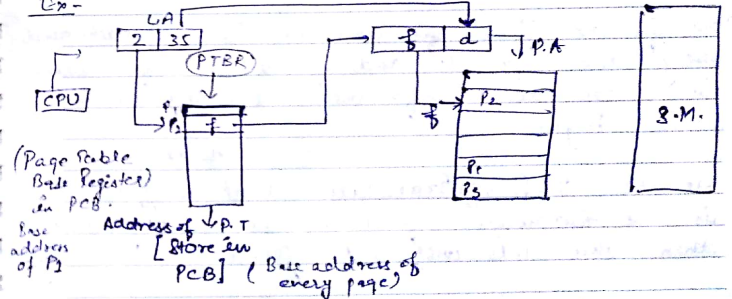 Ex-
LA
2 35
f d
P.A
PTBR
CPU
P1
P2 f
f
P2
S.M.
P1
P3
(Page Table
Base Register)
in PCB.
Base
address
of P1
Address of P.T
[Store in
PCB] (Base address of
every page)